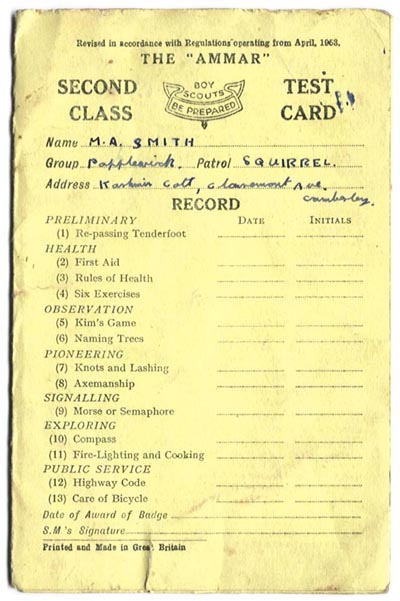 Revised in accordance with Regulations operating from April, 1963.
THE "AMMAR"
SECOND CLASS
BOY SCOUTS
BE PREPARED
TEST CARD
Name M.A. SMITH
Group Papplewick. Patrol SQUIRREL.
Address Kashmir Cott, Claremont Ave. Camberley.
RECORD
PRELIMINARY DATE INITIALS
(1) Re-passing Tenderfoot
HEALTH
(2) First Aid
(3) Rules of Health
(4) Six Exercises
OBSERVATION
(5) Kim's Game
(6) Naming Trees
PIONEERING
(7) Knots and Lashing
(8) Axemanship
SIGNALLING
(9) Morse or Semaphore
EXPLORING
(10) Compass
(11) Fire-Lighting and Cooking
PUBLIC SERVICE
(12) Highway Code
(13) Care of Bicycle
Date of Award of Badge
S.M's Signature
Printed and Made in Great Britain